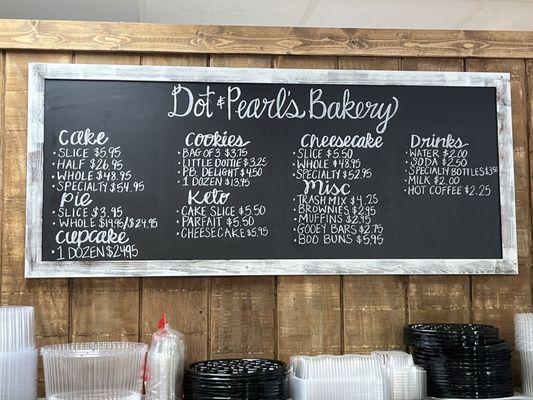 Dot & Pearl's Bakery
Cake
• SLICE $5.95
• HALF $26.95
• WHOLE $48.95
• SPECIALTY $54.95
Pie
• SLICE $3.95
• WHOLE $19.95/$24.95
Cupcake
• 1 DOZEN $24.95
Cookies
• BAG OF 3 $3.75
• LITTLE DOTTIE $3.25
• P.B. DELIGHT $4.50
• 1 DOZEN $13.95
Keto
• CAKE SLICE $5.50
• PARFAIT $5.50
• CHEESECAKE $5.95
Cheesecake
• SLICE $5.50
• WHOLE $48.95
• SPECIALTY $52.95
Misc
• TRASH MIX $4.25
• BROWNIES $2.95
• MUFFINS $2.95
• GOOEY BARS $2.75
• BOO BUNS $5.95
Drinks
• WATER $2.00
• SODA $2.50
• SPECIALTY BOTTLES $3.50
• MILK $2.00
• HOT COFFEE $2.25